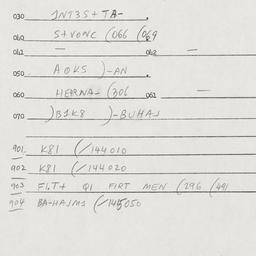 030 JNT3S+TA-.
040 S+VONC (066 (069
041 — 042 —
050 AOKS )-AN.
060 HERNA- (306 061 —
070 )B1K8 )-BUHAJ
901 K81 (/144010
902 K81 (/144020
903 FLT+ Q1 FIRT MEN (296 (491
904 BA-HAJMS (/145050